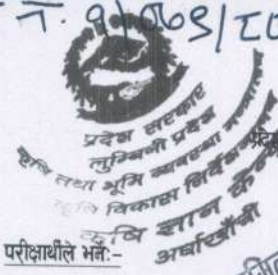 प्रदेश सरकार
लुम्बिनी प्रदेश
कृषि तथा भूमि व्यवस्था मन्त्रालय
कृषि विकास निर्देशनालय
कृषि ज्ञान केन्द्र
अर्घाखाँची
परीक्षार्थीले भर्ने:-